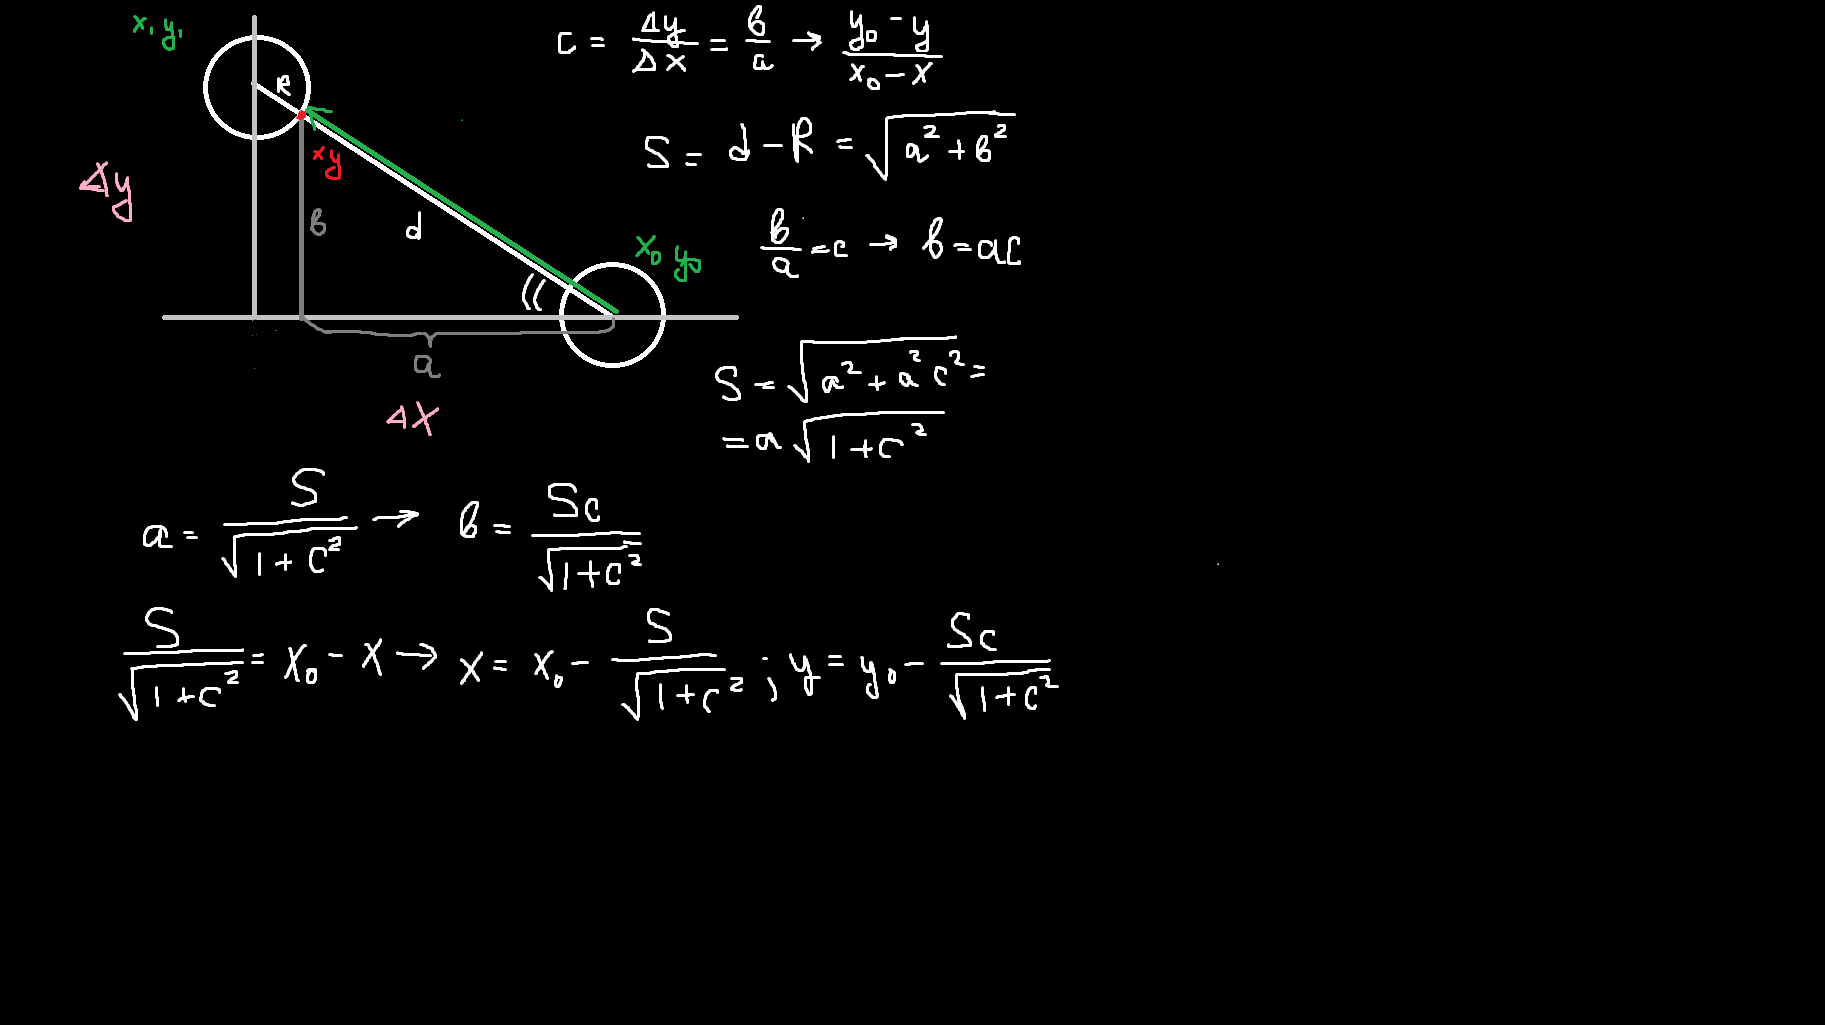 x₁ y₁
R
xy
Δy
в
d
x₀ y₀
a
Δx
c = Δy/Δx = в/a → (y₀ - y)/(x₀ - x)
S = d - R = √(a² + в²)
в/a = c → в = ac
S = √(a² + a²c²) =
= a√(1 + c²)
a = S/√(1 + c²) → в = Sc/√(1 + c²)
S/√(1 + c²) = x₀ - x → x = x₀ - S/√(1 + c²) ; y = y₀ - Sc/√(1 + c²)